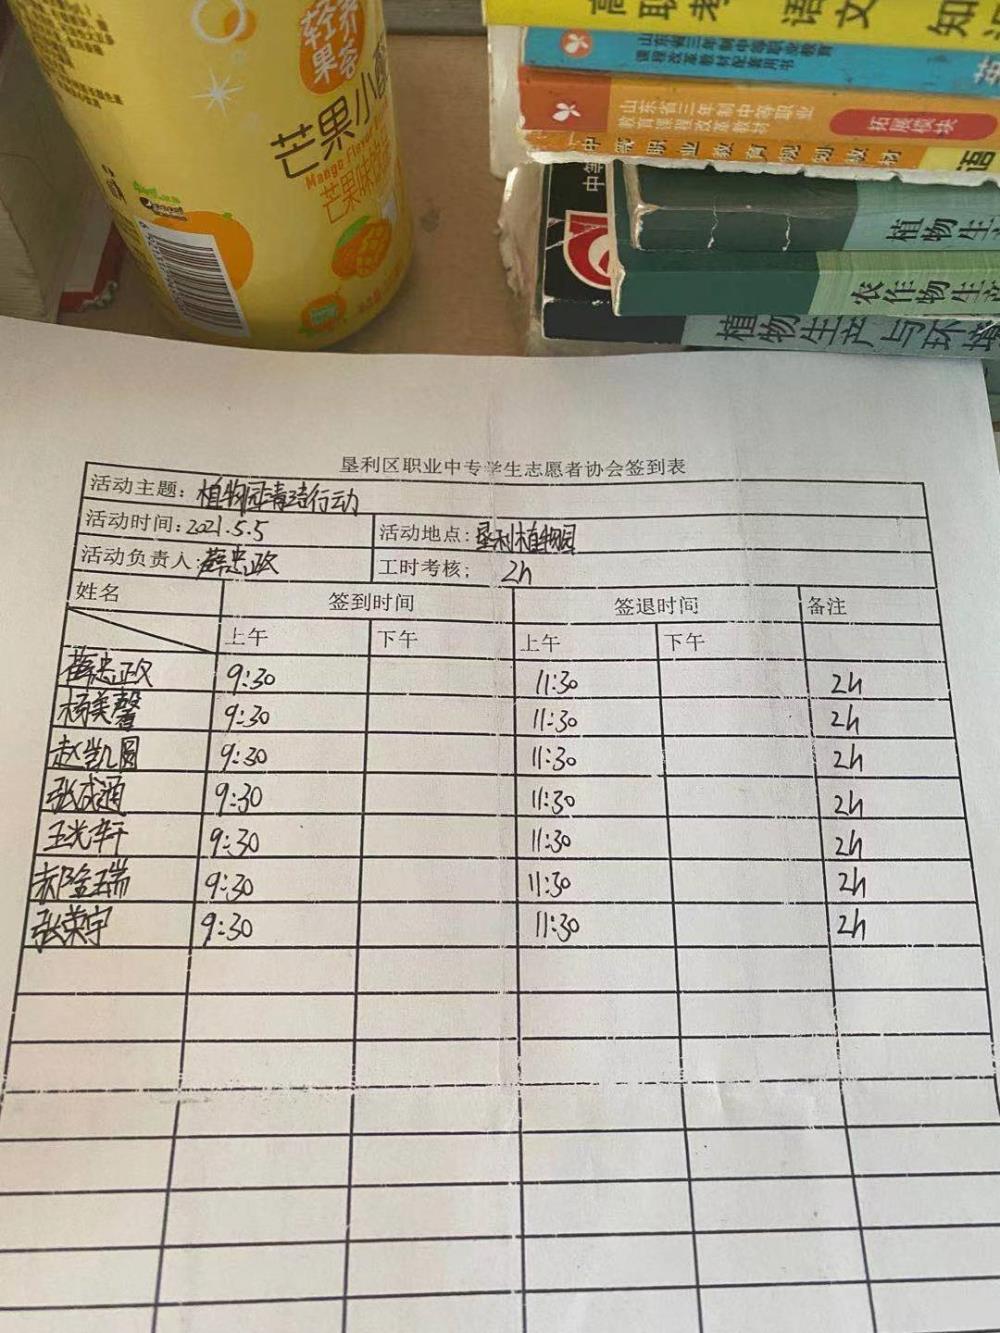 轻养
果茶
芒果小酪
Mango Flavor
芒果味
高职考
语文
知
山东省三年制中等职业教育
课程改革教材配套用书
英
山东省三年制中等职业
教育课程改革教材
拓展模块
中等职业教育规划教材
语
中等
植物生
农作物生产
植物生产与环境
垦利区职业中专学生志愿者协会签到表
活动主题：植物园清洁行动
活动时间：2021.5.5 活动地点：垦利植物园
活动负责人：薛忠政 工时考核： 2h
姓名 签到时间 签退时间 备注
上午 下午 上午 下午
薛忠政 9:30 11:30 2h
杨美馨 9:30 11:30 2h
赵凯圆 9:30 11:30 2h
张成通 9:30 11:30 2h
王光轩 9:30 11:30 2h
郝金瑞 9:30 11:30 2h
张荣宇 9:30 11:30 2h